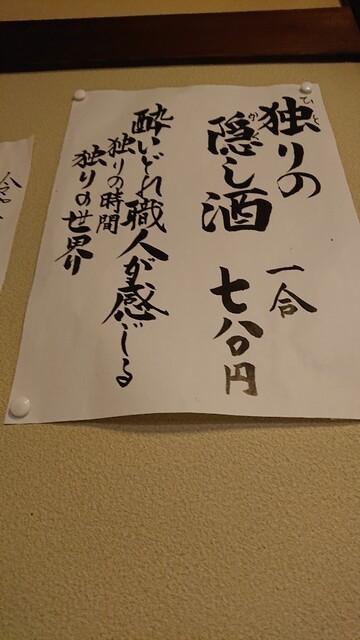 独りの
ひと
隠し酒
かく
一合
七八〇円
酔いどれ職人が感じる
独りの時間
独りの世界